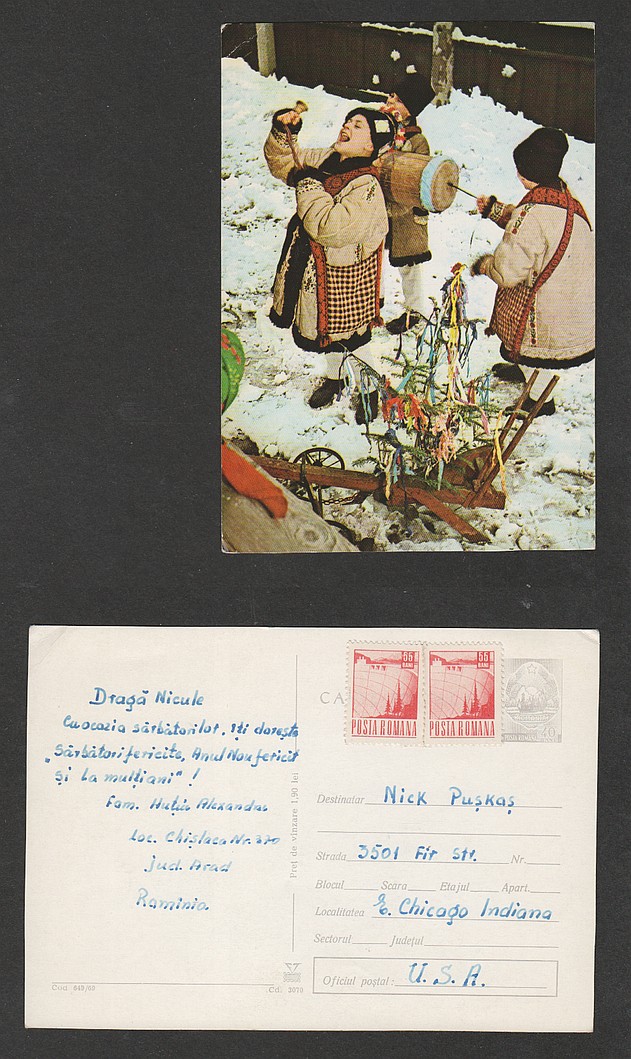 Dragă Nicule
Cuocazia sărbătorilor, iți dorește
„Sărbători fericite, Anul Nou fericit
și La mulțiani" !
Fam. Huțiu Alexandru
Loc. Chișlaca Nr. 370
jud. Arad
Rominia
Cod. 843/69
Cd. 3079
Preț de vînzare 1,90 lei
CA
55
BANI
POSTA ROMANA
55
BANI
POSTA ROMANA
POSTA ROMANA
40
Destinatar Nick Pușkaș
Strada 3501 Fir Str. Nr.
Blocul Scara Etajul Apart.
Localitatea E. Chicago Indiana
Sectorul Județul
Oficiul poștal: U.S.A.